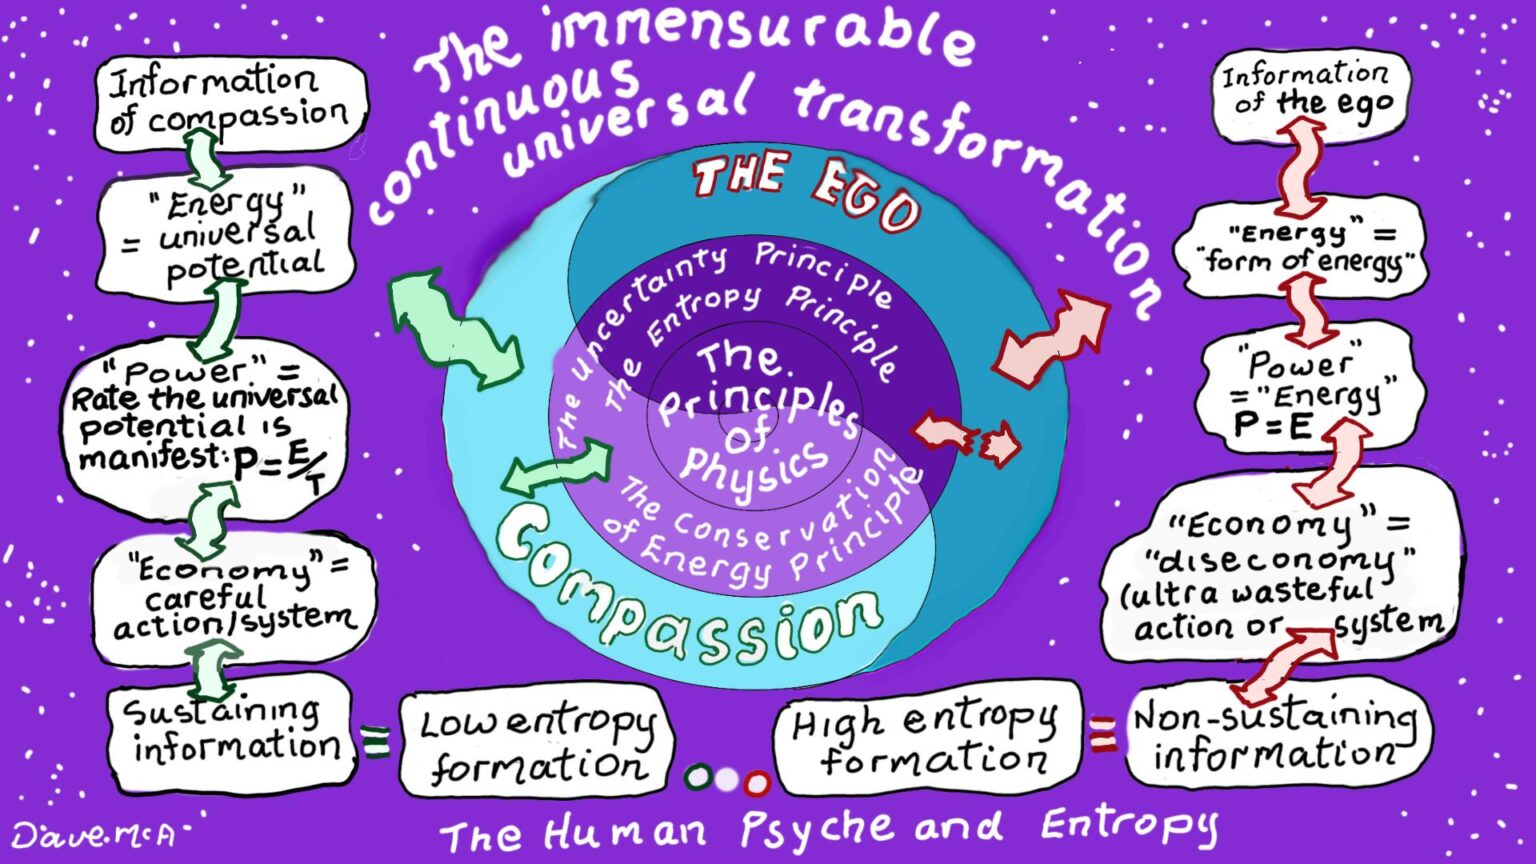 The immensurable
continuous
universal transformation
Information
of compassion
"Energy"
= universal
potential
"Power" =
Rate the universal
potential is
manifest: P=E/T
"Economy" =
careful
action/system
Sustaining
information
=
Low entropy
formation
THE EGO
The Uncertainty Principle
The Entropy Principle
The.
Principles
of
physics
The Conservation
of Energy Principle
Compassion
Information
of the ego
"Energy" =
"form of energy"
"Power"
= "Energy"
P=E
"Economy" =
"diseconomy"
(ultra wasteful
action or system
High entropy
formation
=
Non-sustaining
information
Dave.McA
The Human Psyche and Entropy